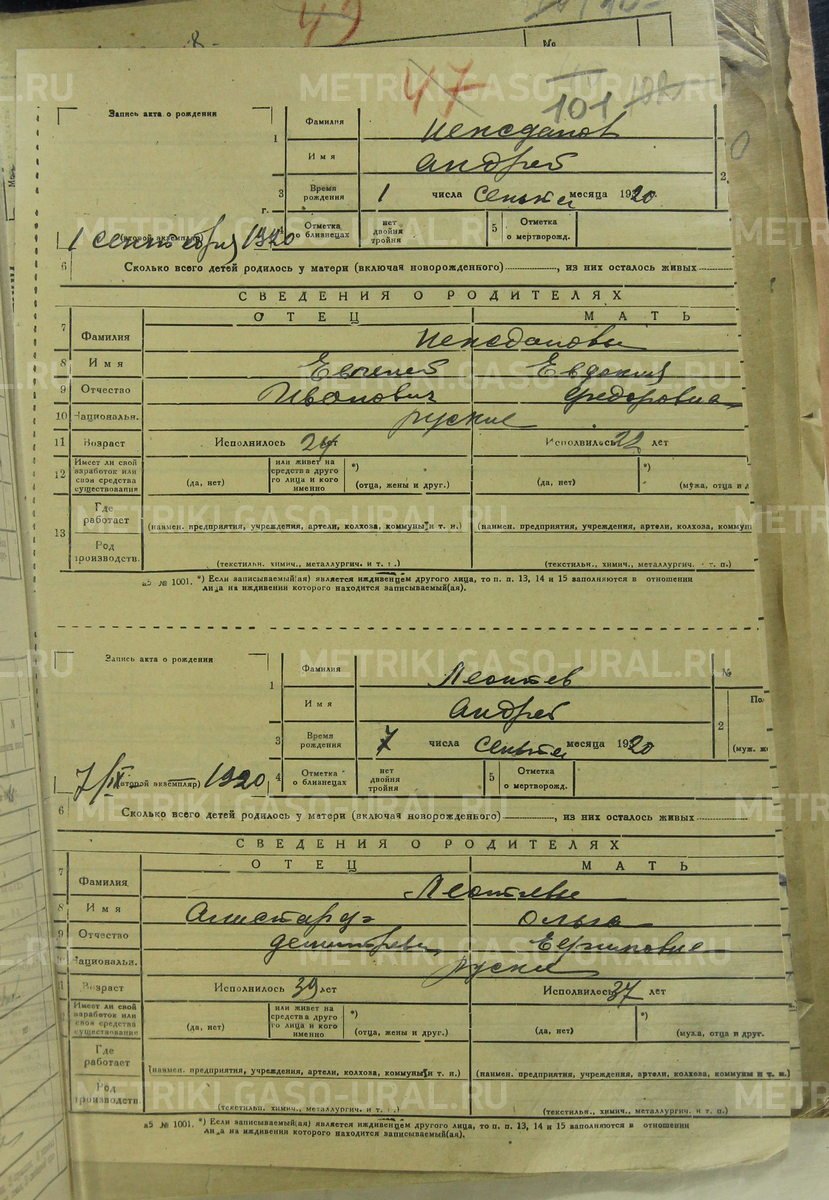 49
№
47
101
Запись акта о рождении
1
Фамилия
Нежданов
Имя
Андрей
2
3
Время рождения
1 числа Сентяб месяца 1920 г.
г.
1 сентября 1920
(второй экземпляр)
4
Отметка о близнецах
нет двойня тройня
5
Отметка о мертворожд.
6
Сколько всего детей родилось у матери (включая новорожденного) , из них осталось живых
СВЕДЕНИЯ О РОДИТЕЛЯХ
ОТЕЦ МАТЬ
7 Фамилия Неждановы
8 Имя Евгений Евдокия
9 Отчество Иванович Федоровна
10 Национальн. русские
11 Возраст Исполнилось 24 лет Исполнилось 22 лет
12 Имеет ли свой заработок или свои средства существования (да, нет) или живет на средства другого лица и кого именно *) (отца, жены и друг.) (да, нет) *) (мужа, отца и д
13 Где работает (наимен. предприятия, учреждения, артели, колхоза, коммуны и т. п.) (наимен. предприятия, учреждения, артели, колхоза, коммуны
Род производств. (текстильн. химич., металлургич. и т. п.) (текстильн., химич., металлургич. и т. п.)
а5 № 1001. *) Если записываемый(ая) является иждивенцем другого лица, то п. п. 13, 14 и 15 заполняются в отношении
лица на иждивении которого находится записываемый(ая).
Запись акта о рождении
1
Фамилия
Леонтев
№
Имя
Андрей
2
По
(муж. ж
3
Время рождения
7 числа Сентяб месяца 1920
7/IX 1920
(второй экземпляр)
4
Отметка о близнецах
нет двойня тройня
5
Отметка о мертворожд.
6
Сколько всего детей родилось у матери (включая новорожденного) , из них осталось живых
СВЕДЕНИЯ О РОДИТЕЛЯХ
ОТЕЦ МАТЬ
7 Фамилия Леонтевы
8 Имя Ольга
9 Отчество
Национальн. руские
Возраст Исполнилось 39 лет Исполнилось 37 лет
Имеет ли свой заработок или свои средства существования (да, нет) или живет на средства другого лица и кого именно *) (отца, жены и друг.) (да, нет) *) (мужа, отца и друг.
Где работает (наимен. предприятия, учреждения, артели, колхоза, коммуны и т. п.) (наимен. предприятия, учреждения, артели, колхоза, коммуны и т. п.)
Род производств. (текстильн. химич., металлургич. и т. п.) (текстильн., химич., металлургич. и т. п.)
а5 № 1001. *) Если записываемый(ая) является иждивенцем другого лица, то п. п. 13, 14 и 15 заполняются в отношении
лица на иждивении которого находится записываемый(ая).
METRIKI.GASO-URAL.RU